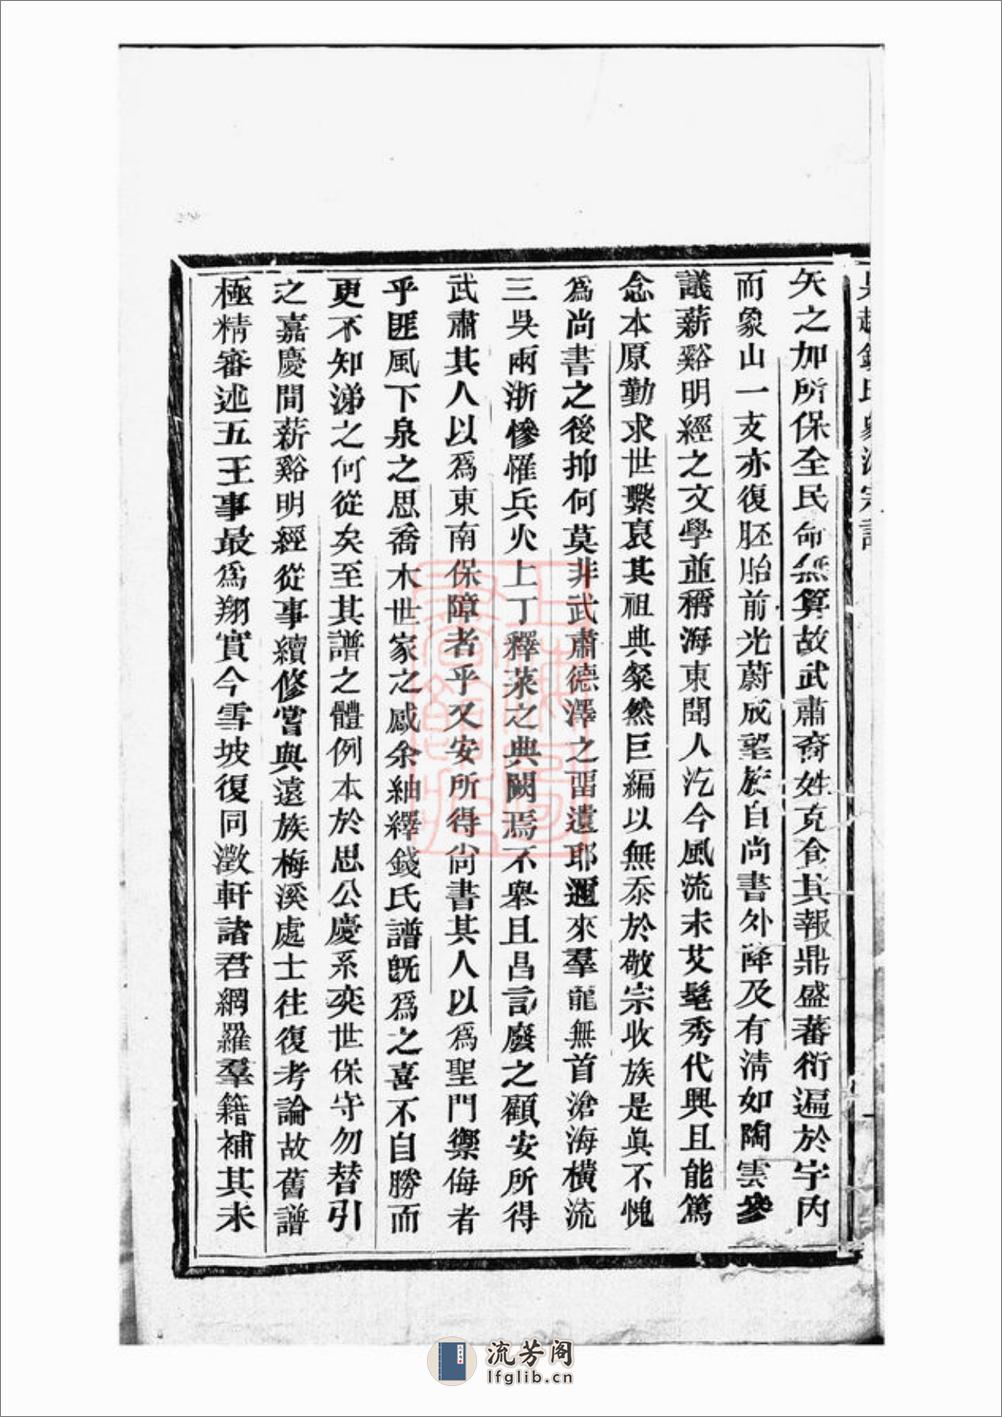 矢之加所保全民命無算故武肅裔姓克食其報鼎盛蕃衍遍於宇內
而象山一支亦復胚胎前光蔚成望族自尚書外降及有清如陶雲參
議薪谿明經之文學並稱海東聞人汔今風流未艾髦秀代興且能篤
念本原勤求世繫裒其祖典粲然巨編以無忝於敬宗收族是眞不愧
爲尚書之後抑何莫非武肅德澤之畱遺耶邇來羣龍無首滄海橫流
三吳兩浙慘罹兵火上丁釋菜之典闕焉不舉且昌言廢之顧安所得
武肅其人以爲東南保障者乎又安所得尚書其人以爲聖門禦侮者
乎匪風下泉之思喬木世家之感余紬繹錢氏譜旣爲之喜不自勝而
更不知涕之何從矣至其譜之體例本於思公慶系奕世保守勿替引
之嘉慶間薪谿明經從事續修嘗與遠族梅溪處士往復考論故舊譜
極精審述五王事最爲翔實今雪坡復同澂軒諸君網羅羣籍補其未
流芳阁
lfglib.cn